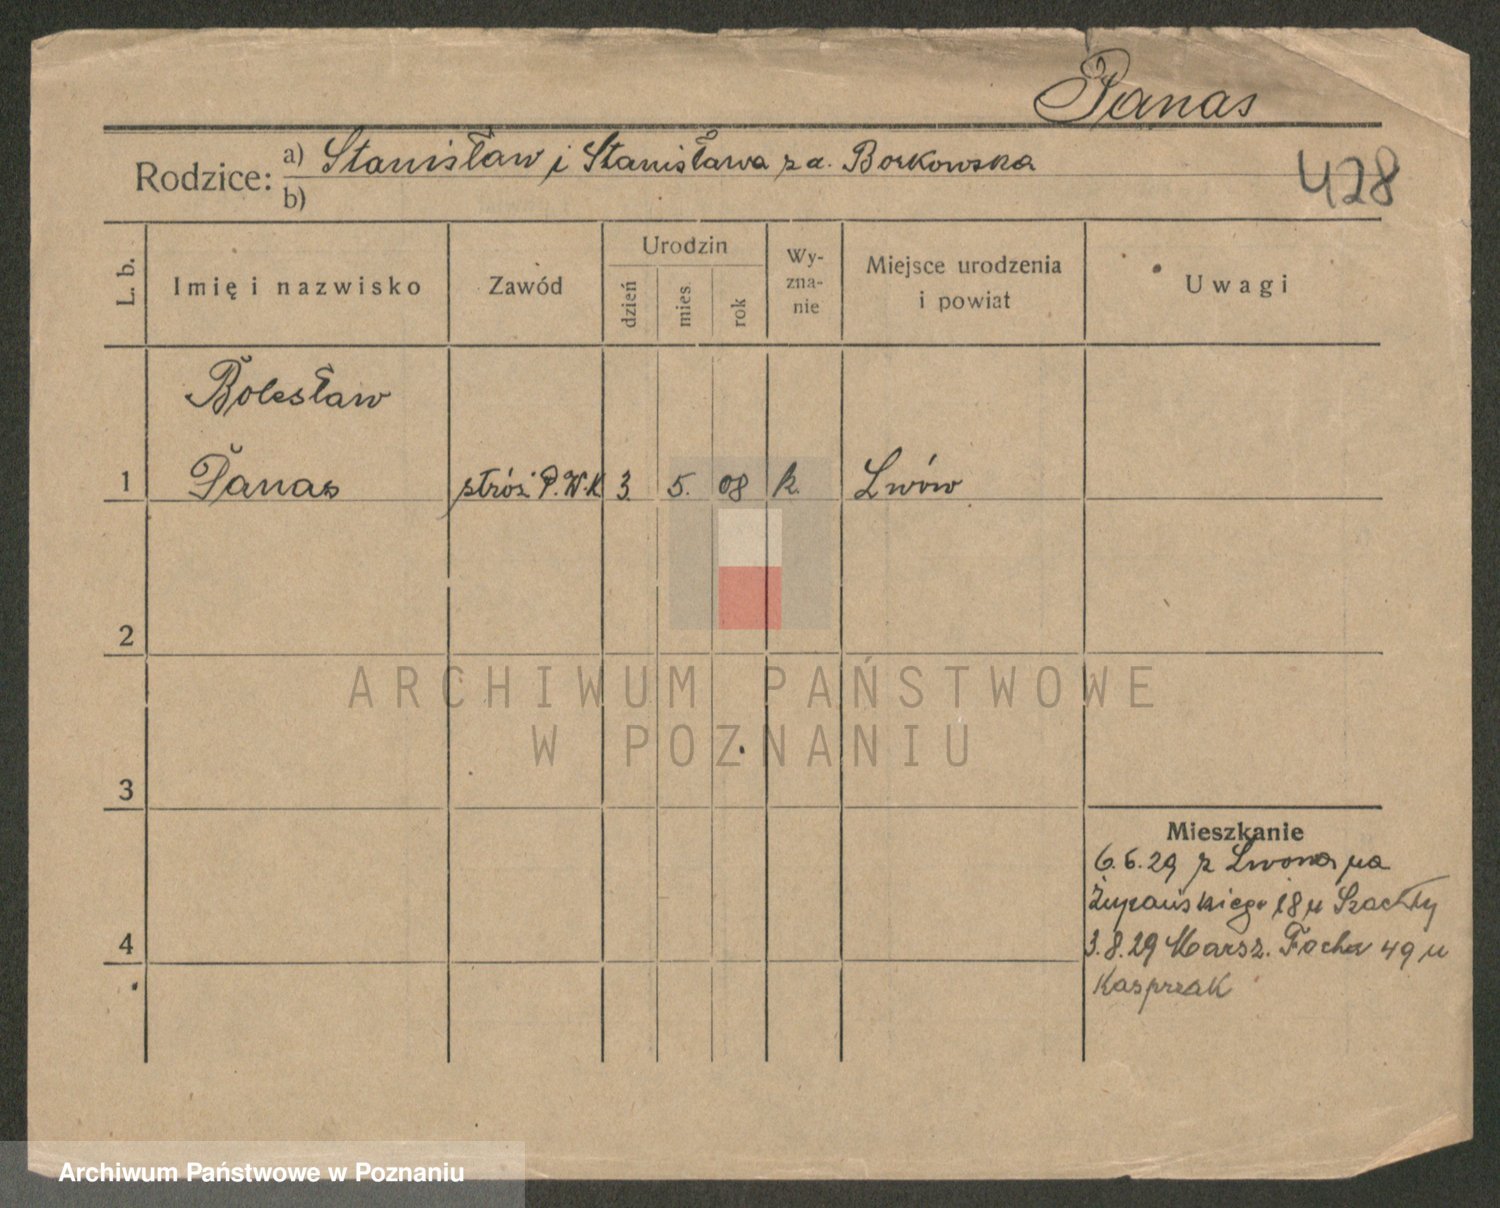 Panas
Rodzice: a) Stanisław i Stanisława z d. Borkowska
b)
428
L. b.
Imię i nazwisko
Zawód
Urodzin
dzień
mies.
rok
Wy-
zna-
nie
Miejsce urodzenia
i powiat
Uwagi
Bolesław
1 Panas stróż P.W.K 3. 5. 08 k. Lwów
2
ARCHIWUM PAŃSTWOWE
W POZNANIU
3
Mieszkanie
6.6.29 z Lwowa na
Żupańskiego 18 u Szachty
4
3.8.29 Marsz. Focha 49 u
Kasprzak
Archiwum Państwowe w Poznaniu